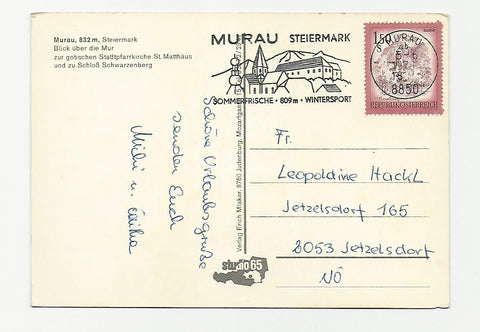 Murau, 832 m, Steiermark
Blick über die Mur
zur gotischen Stadtpfarrkirche St. Matthäus
und zu Schloß Schwarzenberg
MURAU STEIERMARK
SOMMERFRISCHE • 809 m • WINTERSPORT
1.50
MURAU
8850
REPUBLIK ÖSTERREICH
Schöne Urlaubsgrüße
senden Euch
Verlag Erich Mlaker, 8750 Judenburg, Mozartgasse
studio 65
Fr.
Leopoldine Hackl
Jetzelsdorf 165
2053 Jetzelsdorf
NÖ